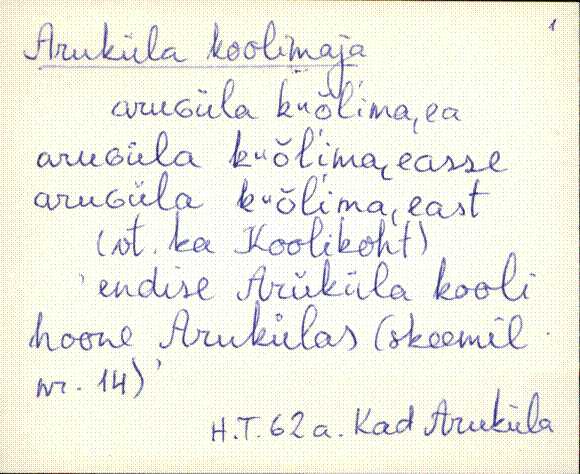 1
Aruküla koolimaja
aruGüla kᵘŏlima̦ea
aruGüla kᵘŏlima̦easse
aruGüla kᵘŏlima̦east
(vt. ka Koolikoht)
'endise Aruküla kooli
hoone Arukülas (skeemil
nr. 14)'
H.T. 62 a. Kad Aruküla